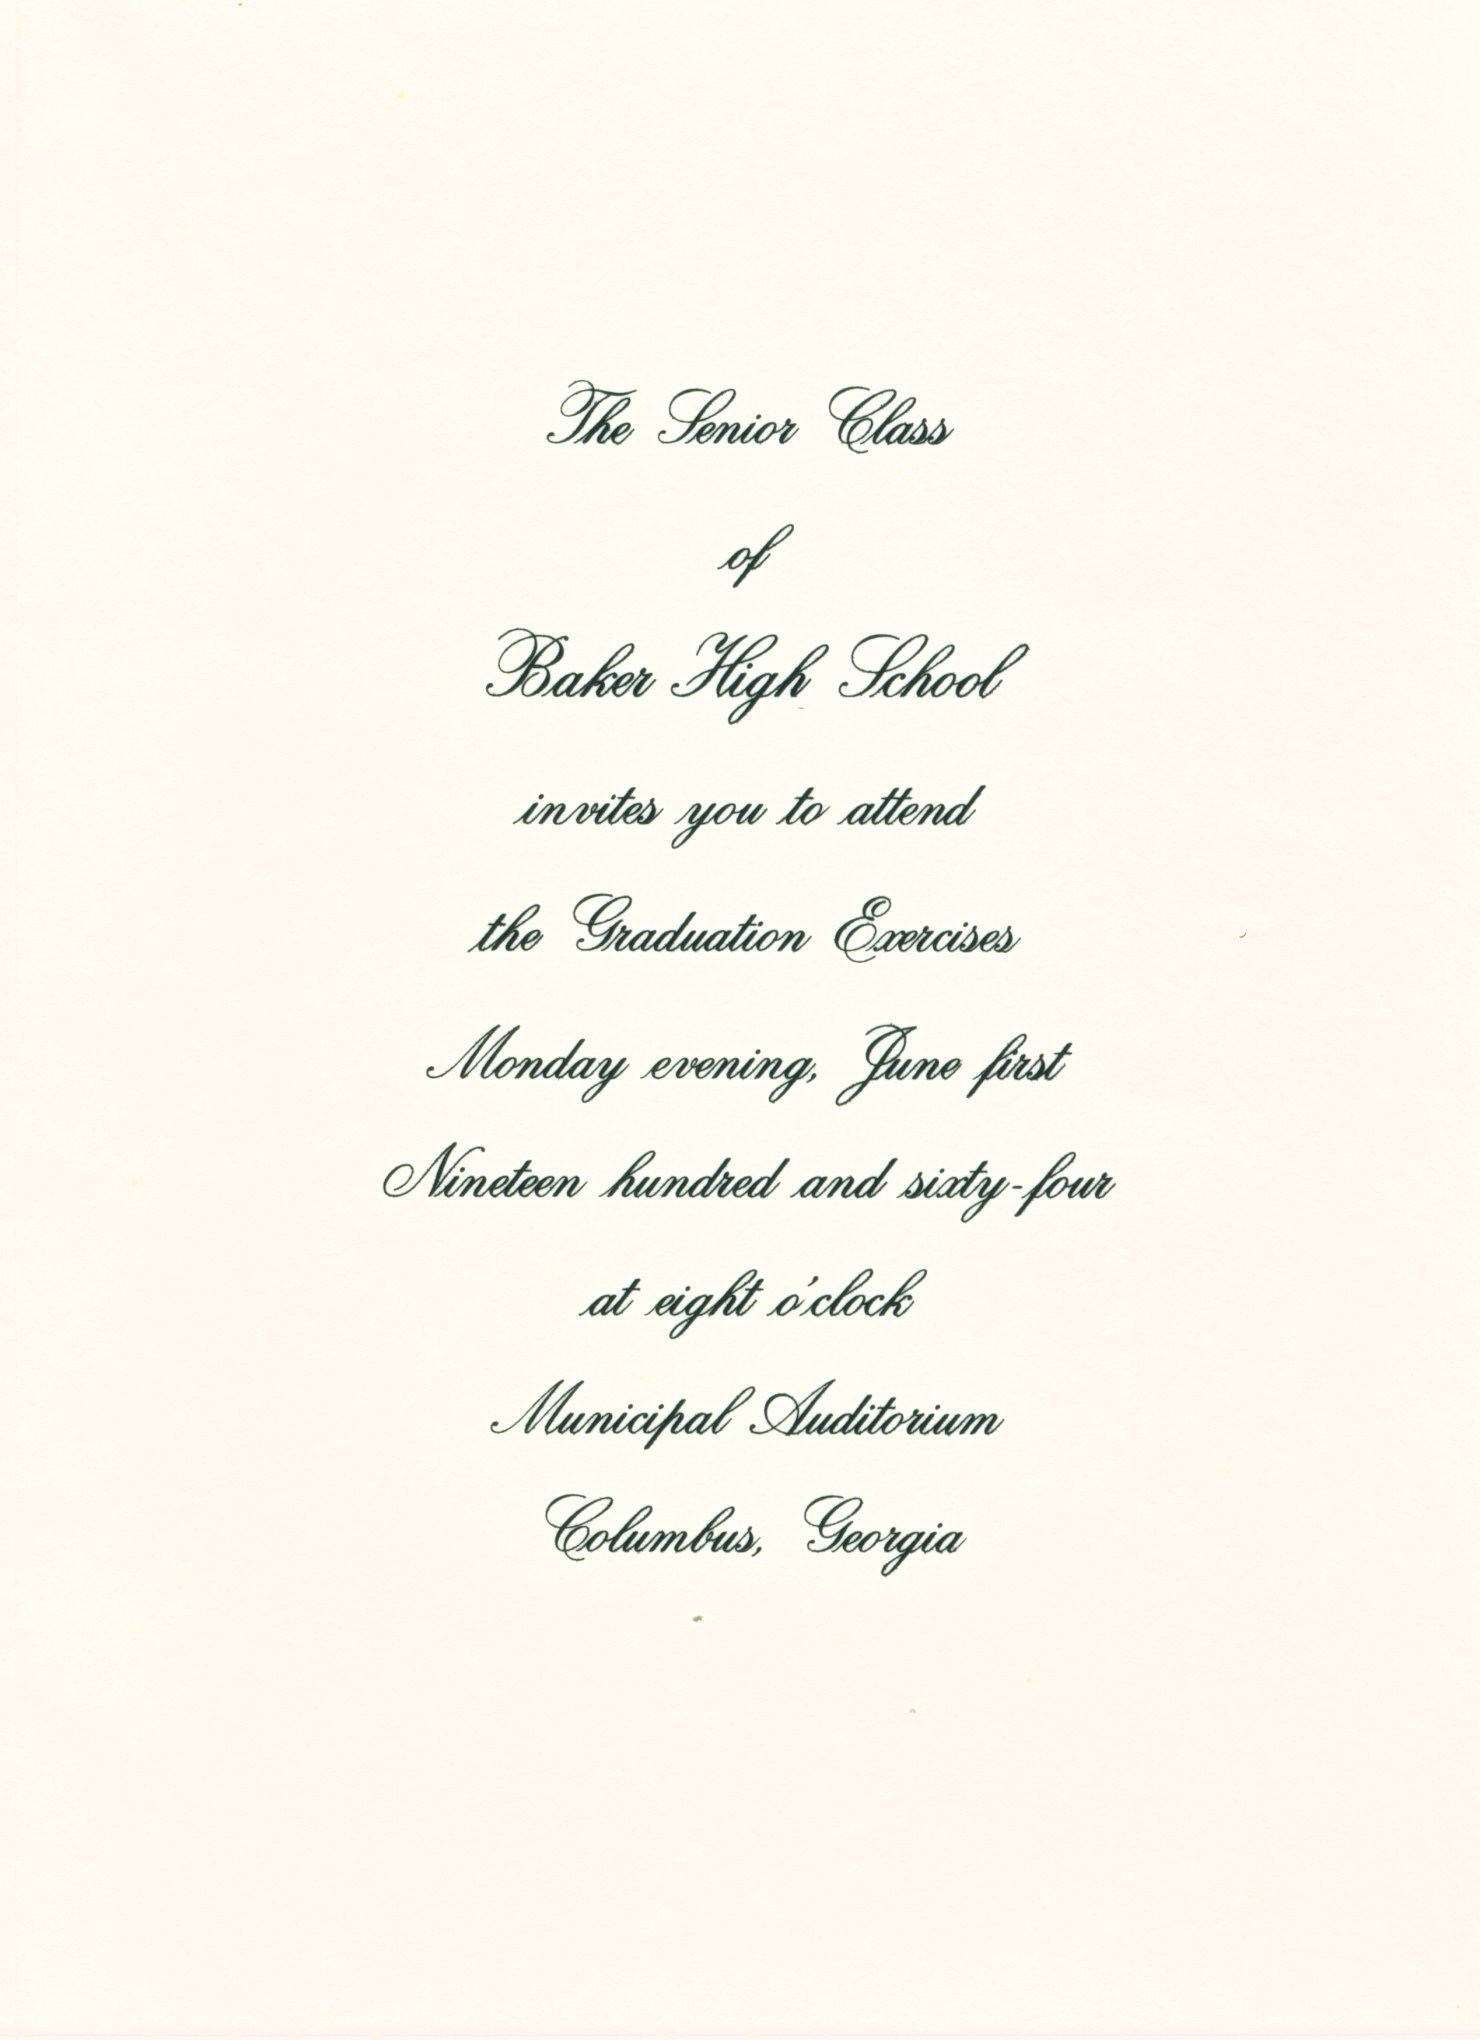 The Senior Class
of
Baker High School
invites you to attend
the Graduation Exercises
Monday evening, June first
Nineteen hundred and sixty-four
at eight o'clock
Municipal Auditorium
Columbus, Georgia